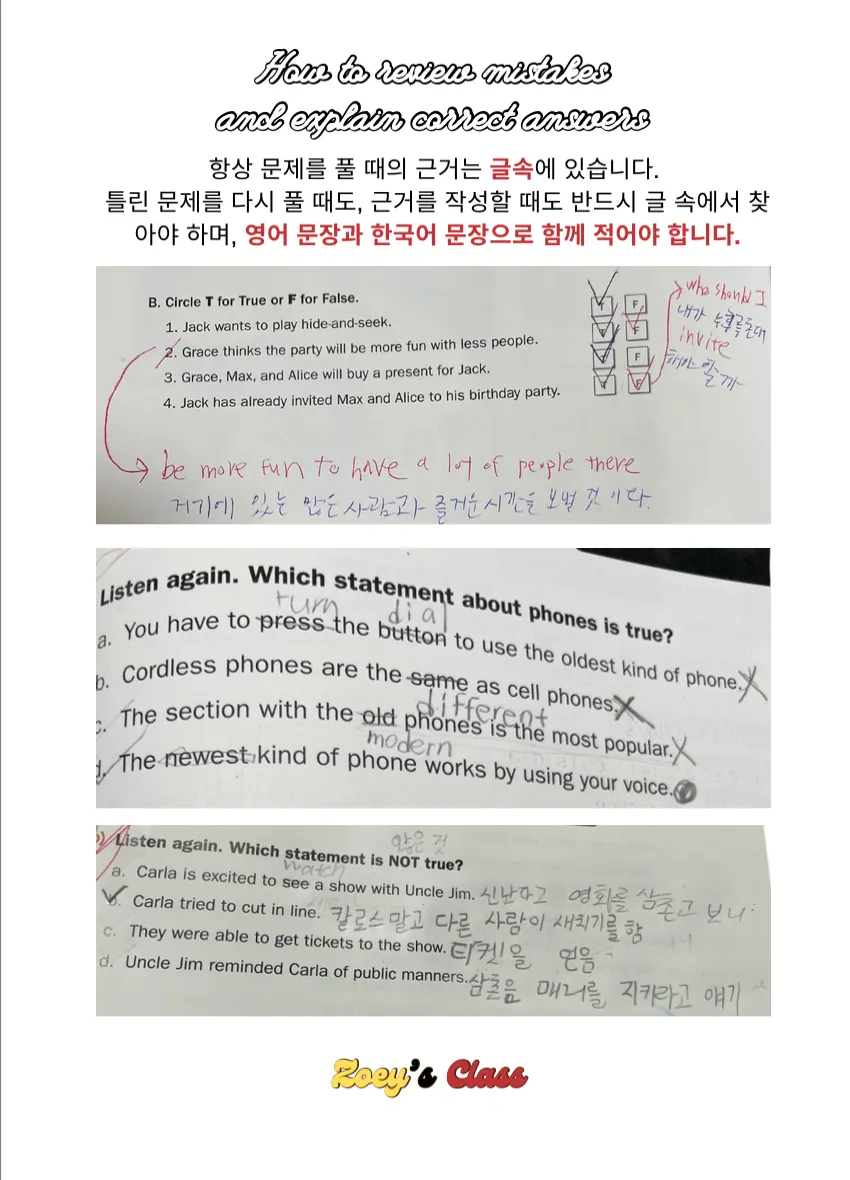 How to review mistakes
and explain correct answers
항상 문제를 풀 때의 근거는 글속에 있습니다.
틀린 문제를 다시 풀 때도, 근거를 작성할 때도 반드시 글 속에서 찾
아야 하며, 영어 문장과 한국어 문장으로 함께 적어야 합니다.
B. Circle T for True or F for False.
1. Jack wants to play hide-and-seek. T F
2. Grace thinks the party will be more fun with less people. T F
3. Grace, Max, and Alice will buy a present for Jack. T F
4. Jack has already invited Max and Alice to his birthday party. T F
who should I
내가 누구를
invite
해야 할까
be more fun to have a lot of people there
거기에 있는 많은 사람과 즐거운 시간을 보낼 것이다.
Listen again. Which statement about phones is true?
turn dial
a. You have to press the button to use the oldest kind of phone.
b. Cordless phones are the same as cell phones.
different
c. The section with the old phones is the most popular.
modern
d. The newest kind of phone works by using your voice.
않은 것
Listen again. Which statement is NOT true?
watch
a. Carla is excited to see a show with Uncle Jim. 신난다고 영화를 삼촌고 보니
b. Carla tried to cut in line. 칼로스 말고 다른 사람이 새치기를 함
c. They were able to get tickets to the show. 티켓을 얻음
d. Uncle Jim reminded Carla of public manners. 삼촌음 매너를 지키라고 얘기
Zoey's Class